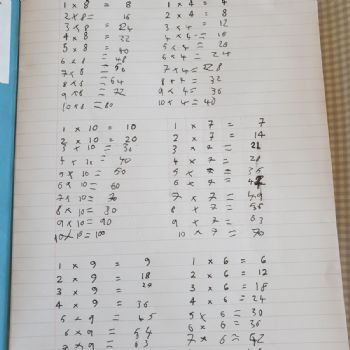 1 x 8 = 8
2 x 8 = 16
3 x 8 = 24
4 x 8 = 32
5 x 8 = 40
6 x 8 = 48
7 x 8 = 56
8 x 8 = 64
9 x 8 = 72
10 x 8 = 80
1 x 4 = 4
2 x 4 = 8
3 x 4 = 12
4 x 4 = 16
5 x 4 = 20
6 x 4 = 24
7 x 4 = 28
8 x 4 = 32
9 x 4 = 36
10 x 4 = 40
1 x 10 = 10
2 x 10 = 20
3 x 10 = 30
4 x 10 = 40
5 x 10 = 50
6 x 10 = 60
7 x 10 = 70
8 x 10 = 80
9 x 10 = 90
10 x 10 = 100
1 x 7 = 7
2 x 7 = 14
3 x 7 = 21
4 x 7 = 28
5 x 7 = 35
6 x 7 = 42
7 x 7 = 49
8 x 7 = 56
9 x 7 = 63
10 x 7 = 70
1 x 9 = 9
2 x 9 = 18
3 x 9 = 27
4 x 9 = 36
5 x 9 = 45
6 x 9 = 54
7 x 9 = 63
1 x 6 = 6
2 x 6 = 12
3 x 6 = 18
4 x 6 = 24
5 x 6 = 30
6 x 6 = 36
7 x 6 =